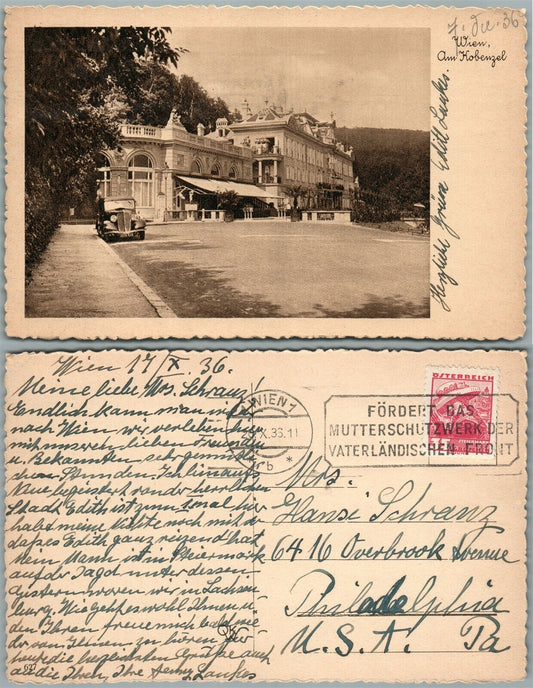 7. Dez. 36
Wien,
Am Kobenzel
Herzliche Grüsse Edith Laukes.
Wien 17/X. 36.
Meine liebe Mrs. Schranz!
Endlich kann man
nach Wien wir verleben hier
mit unseren lieben Freunden
u. Bekannten sehr gemütli-
chen Stunden. Ich bin aufs
Neue begeistert von der herrlichen
Stadt Edith ist zum total hier
habe meine noch mit
dass es Edith ganz reizend hat.
Mein Mann ist in Steiermark
auf der Jagd unterdessen
waren wir in Salz
burg. Wie geht es wohl Ihnen u.
den Ihren freue mich bald wie-
der von Ihnen zu hören. Für
heute die herzlichsten Grüße auch
an die Ihren, Ihre Laukes
WIEN 1
X.36.11
b *
FÖRDERT DAS
MUTTERSCHUTZWERK DER
VATERLÄNDISCHEN FRONT
ÖSTERREICH
Mrs.
Hansi Schranz
6416 Overbrook Avenue
Philadelphia
U.S.A. Pa